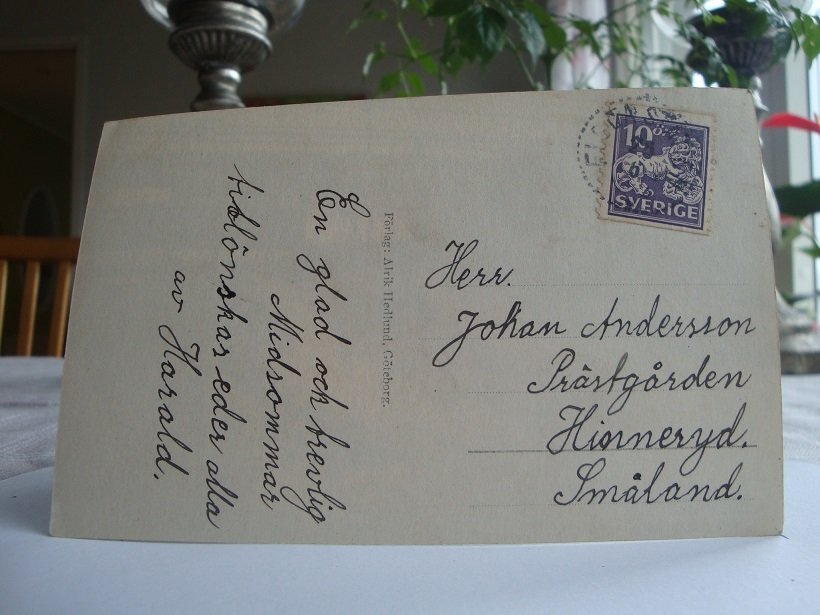 En glad och trevlig
Midsommar
tillönskas eder alla
av Harald.
Förlag: Alrik Hedlund, Göteborg.
10 ö.
SVERIGE
Herr.
Johan Andersson
Prästgården
Hinneryd.
Småland.